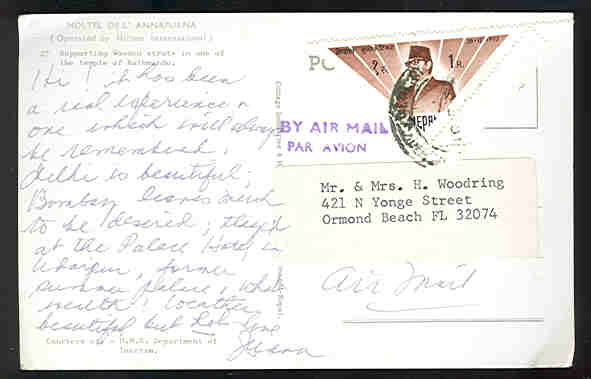 HOLTEL DE L' ANNAPURNA
(Operated by Hilton International)
27 Supporting Wooden struts in one of
the temple of Kathmandu.
Hi! it has been
a real experience &
one which will always
be remembered.
Delhi is beautiful;
Bombay leaves much
to be desired;
at the Palace Hotel in
Udaipur, former
summer palace, what
wealth! Weather
beautiful but hot. Love
Courtesy - H.M.G. Department of
Tourism.
BY AIR MAIL
PAR AVION
1 R.
NEPAL
Mr. & Mrs. H. Woodring
421 N Yonge Street
Ormond Beach FL 32074
Air Mail